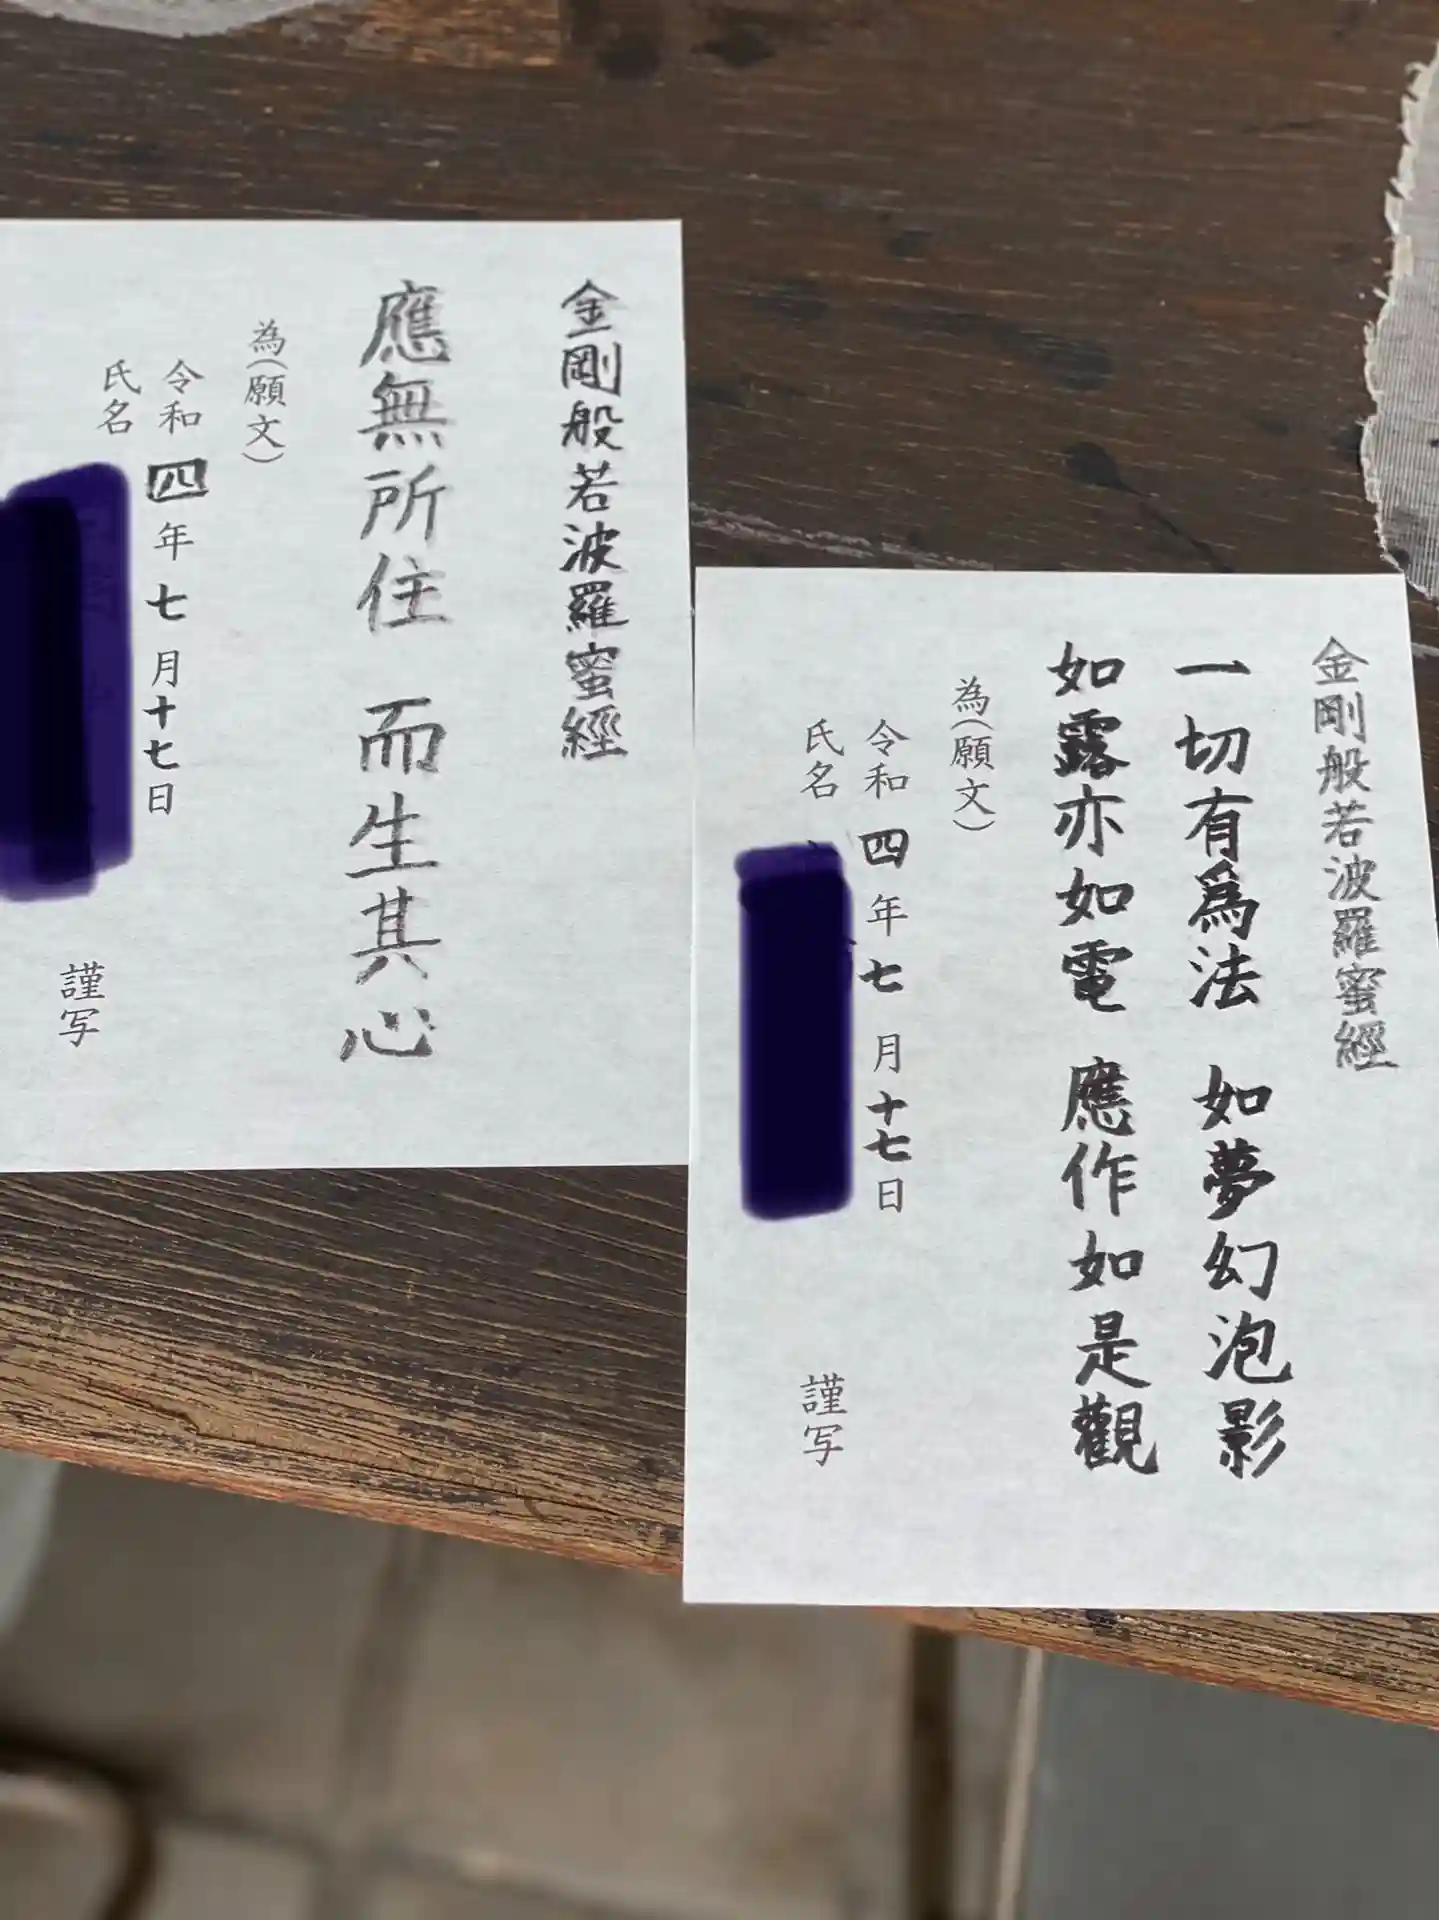 金剛般若波羅蜜經
應無所住　而生其心
為（願文）
令和四年七月十七日
氏名
謹写
金剛般若波羅蜜經
一切有爲法　如夢幻泡影
如露亦如電　應作如是觀
為（願文）
令和四年七月十七日
氏名
謹写